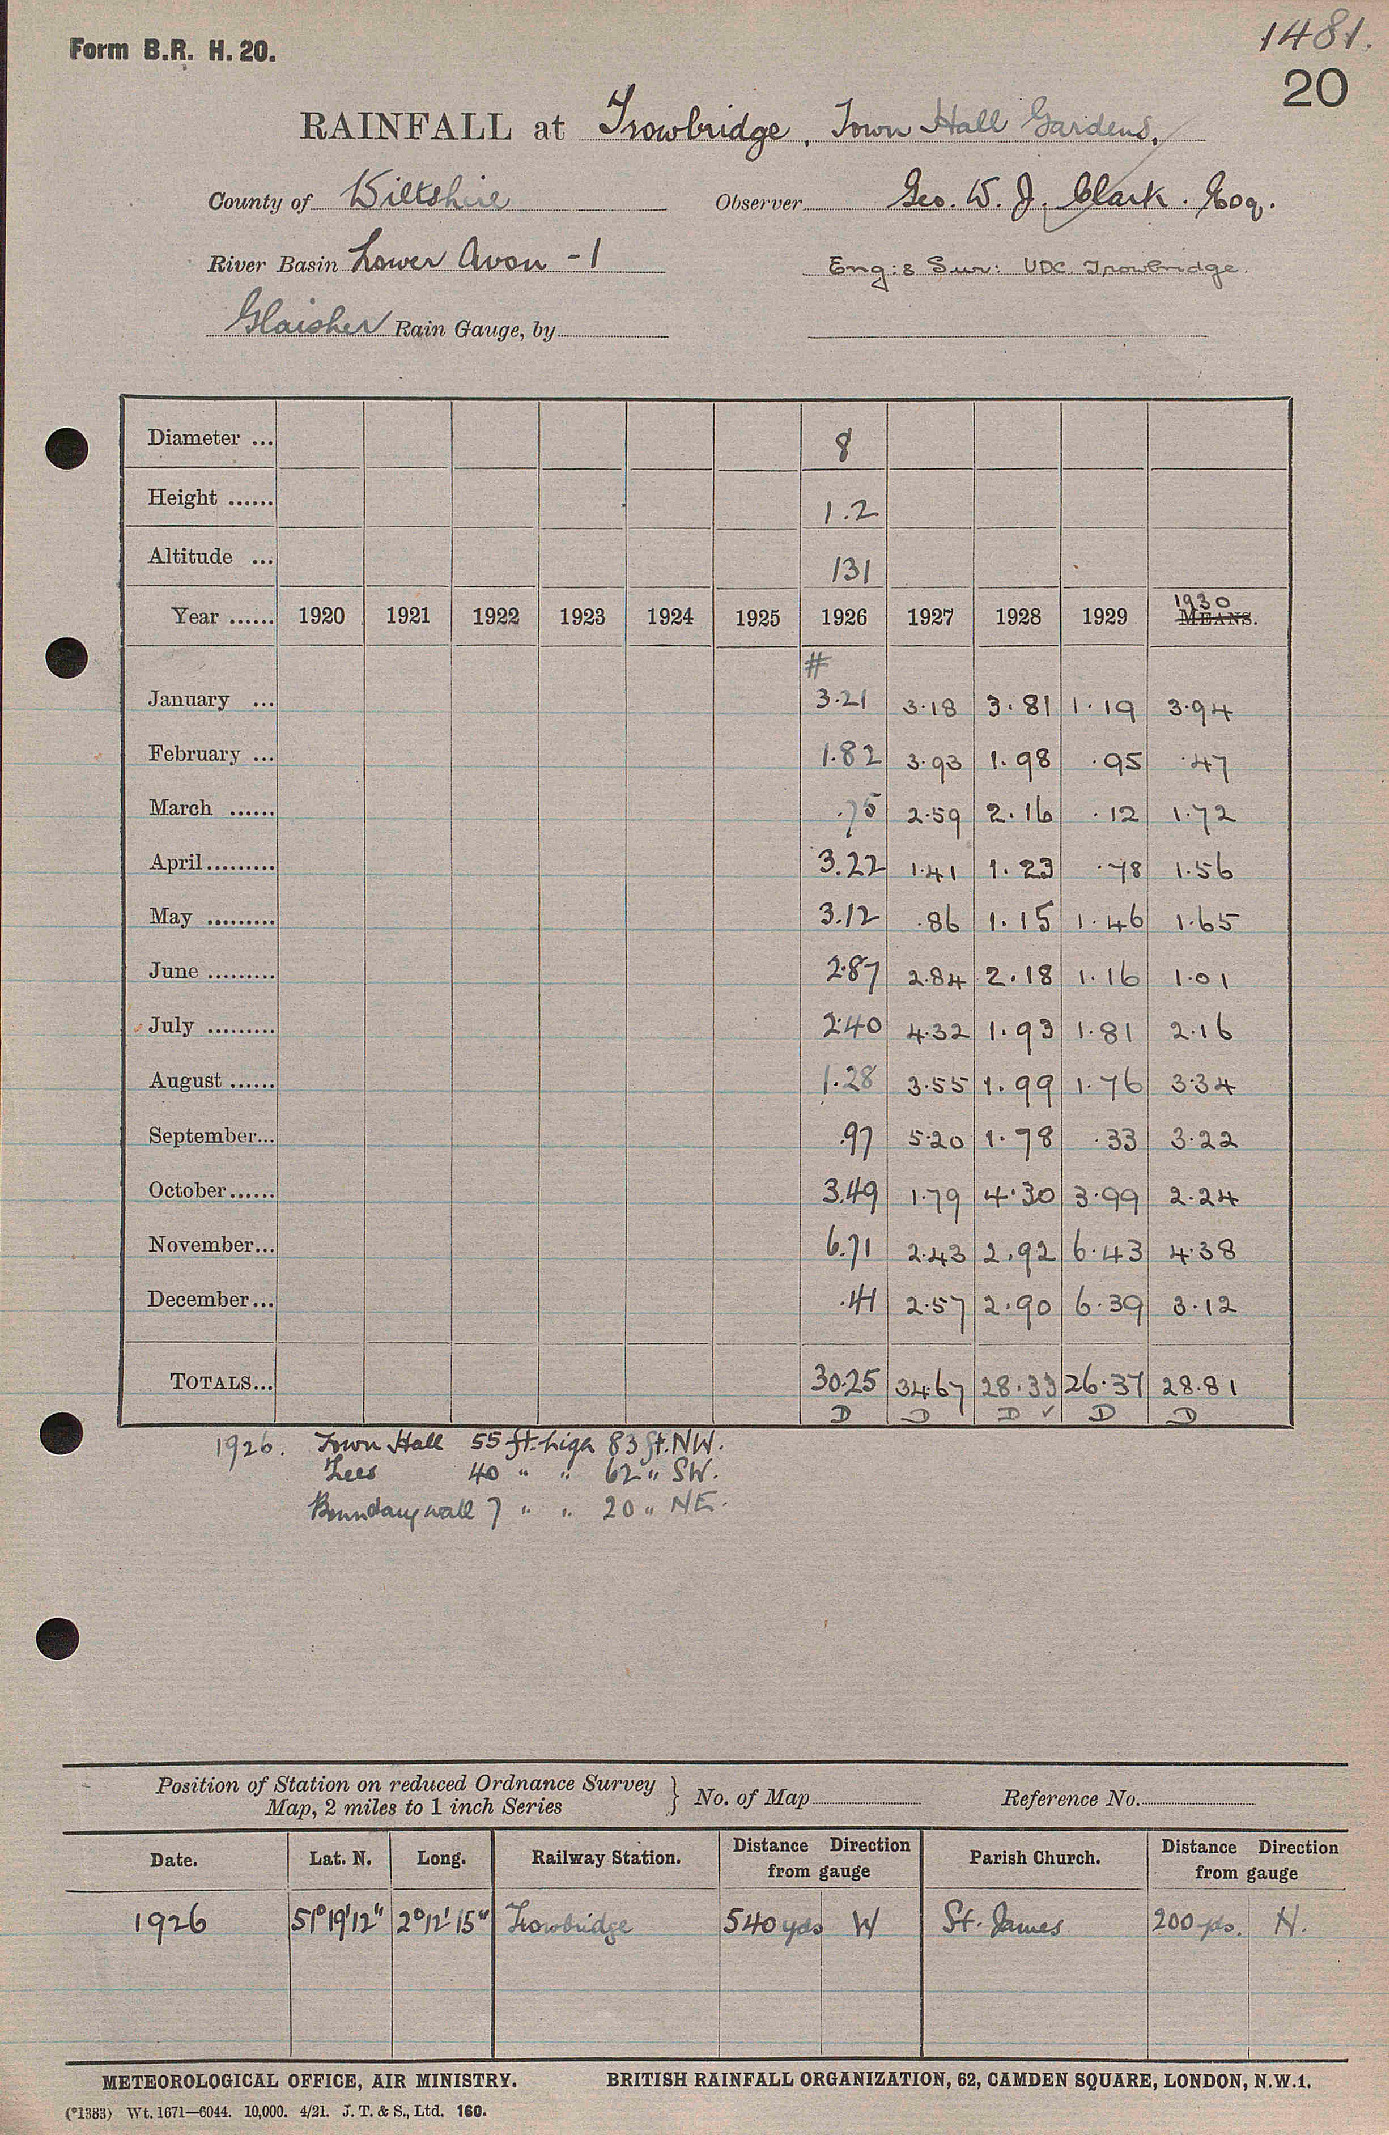 1481.
Form B.R. H. 20.
20
RAINFALL at Trowbridge, Town Hall Gardens.
County of Wiltshire Observer Geo. W. J. Clark. Esq.
River Basin Lower Avon - 1 Eng: & Sur: UDC Trowbridge
Glaisher Rain Gauge, by
Diameter ... 8
Height ...... 1.2
Altitude ... 131
1930
Year ...... 1920 1921 1922 1923 1924 1925 1926 1927 1928 1929 MEANS.
#
January ... 3.21 3.18 3.81 1.19 3.94
February ... 1.82 3.93 1.98 .95 .47
March ...... .75 2.59 2.16 .12 1.72
April......... 3.22 1.41 1.23 .78 1.56
May ......... 3.12 .86 1.15 1.46 1.65
June ......... 2.87 2.84 2.18 1.16 1.01
July ......... 2.40 4.32 1.93 1.81 2.16
August ...... 1.28 3.55 1.99 1.76 3.34
September... .97 5.20 1.78 .33 3.22
October...... 3.49 1.79 4.30 3.99 2.24
November... 6.71 2.43 2.92 6.43 4.38
December... .41 2.57 2.90 6.39 3.12
TOTALS... 30.25 34.67 28.33 26.37 28.81
D D D ✓ D D
1926. Town Hall 55 ft. high 83 ft. NW.
Trees 40 " " 62 " SW.
Boundary wall 7 " " 20 " NE.
Position of Station on reduced Ordnance Survey } No. of Map Reference No.
Map, 2 miles to 1 inch Series
Date. Lat. N. Long. Railway Station. Distance Direction from gauge Parish Church. Distance Direction from gauge
1926 51° 19' 12" 2° 12' 15" Trowbridge 540 yds W St. James 200 yds. N.
METEOROLOGICAL OFFICE, AIR MINISTRY. BRITISH RAINFALL ORGANIZATION, 62, CAMDEN SQUARE, LONDON, N.W.1.
(*1383) Wt. 1671—6044. 10,000. 4/21. J. T. & S., Ltd. 160.